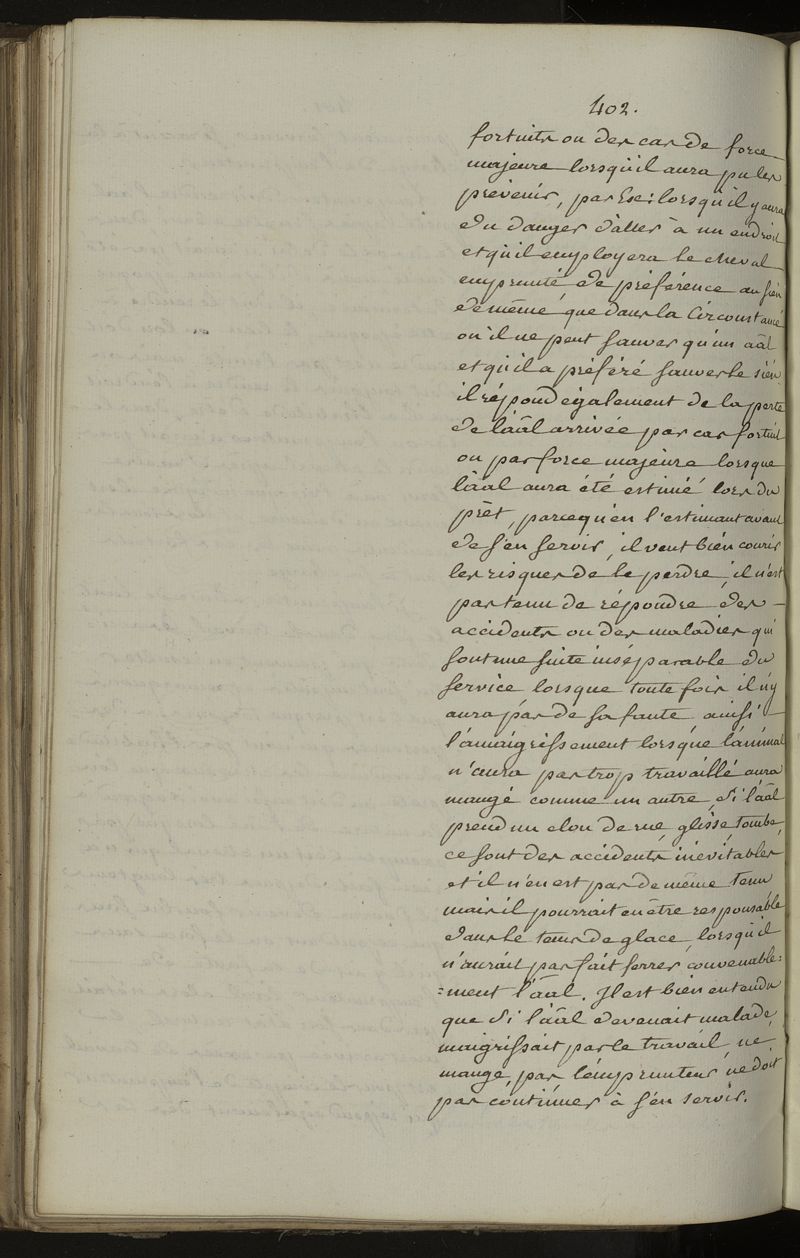 402.
fortuits ou des cas de force
majeure lorsqu'il aura pu les
prévenir, par Exe: lorsqu'il y aura
du danger d'aller à un endroit
et qu'il employera le cheval
emprunté de préférence au sién
de même que dans la Circonstance
où il ne peut sauver qu'un aâl
et qu'il a préféré sauver le sién
il répond également de la perte
de l'aâl arrivée par cas fortuit
ou par force majeure lorsque
l'aâl aura été estimé lors du
prêt, parcequ'en l'estimant avant
de s'en servir, il veut bién courir
les risques de le perdre, il n'est
pas tenu de répondre des
accidents ou des maladies qui
sont une suite inséparable du
service lorsque toute fois il n'y
aura pas de sa faute, ainsi
l'amaigrissement lorsque l'animal
n'aura pas trop travaillé aura
mangé comme un autre, si l'aâl
prend un clou de rue, glisse, tombe,
ce sont des accidents inévitables
et il n'en est pas de même tenu
mais il pourrait en être responsable
dans le tems de glace, lorsqu'il
n'aurait pas fait ferrer convenable=
=ment l'aâl. Il est bién entendu
que si l'aâl devenait malade,
maigrissait par le travail, ne
mange, pas l'emprunteur ne doit
pas continuer à s'en servir.